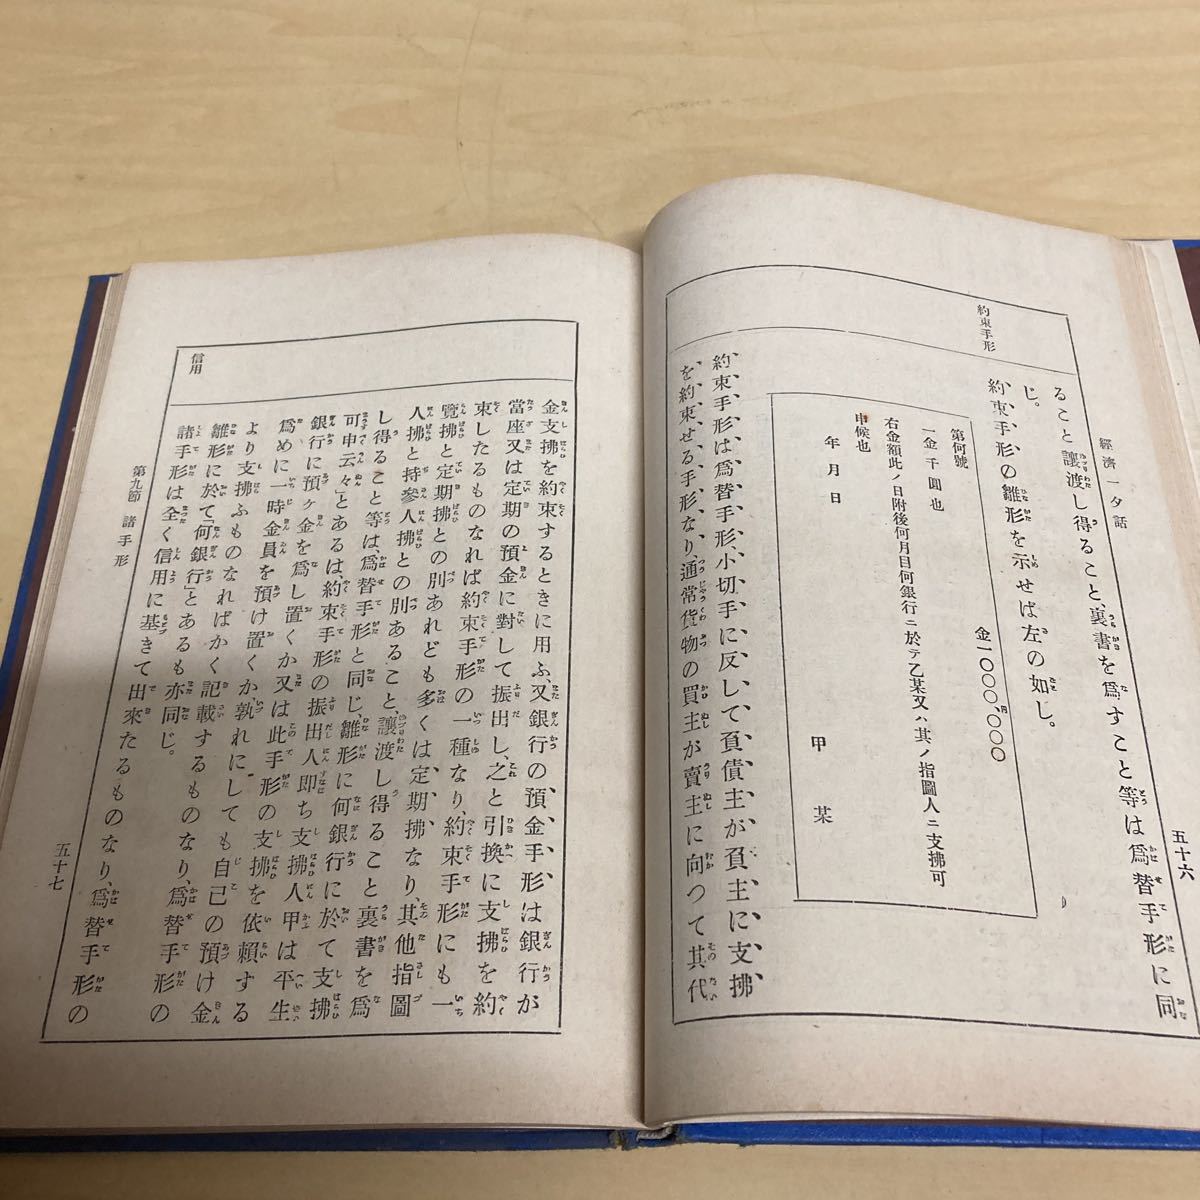 經濟一夕話
五十六
約束手形
ること讓渡し得ること、裏書を爲すこと等は爲替手形に同
じ。
約束手形の雛形を示せば左の如し。
金一〇〇〇、〇〇〇
第何號
一金 千圓也
右金額此ノ日附後何月目何銀行ニ於テ乙某又ハ其ノ指圖人ニ支拂可
申候也
年 月 日
甲 某
約束手形は爲替手形、小切手に反して負債主が貸主に支拂
を約束せる手形なり、通常貨物の買主が賣主に向つて其代
信用
金支拂を約束するときに用ふ、又銀行の預金手形は銀行が
當座又は定期の預金に對して振出し、之と引換に支拂を約
束したるものなれば約束手形の一種なり、約束手形にも一
覽拂と定期拂との別あれども多くは定期拂なり、其他指圖
人拂と持參人拂との別あること、讓渡し得ること裏書を爲
し得ること等は、爲替手形と同じ、雛形に何銀行に於て支拂
可申云々」とあるは、約束手形の振出人即ち支拂人甲は平生
銀行に預ヶ金を爲し置くか又は此手形の支拂を依賴する
爲めに一時金員を預け置くか、孰れにしても自己の預け金
より支拂ふものなればかく記載するものなり、爲替手形の
雛形に於て「何銀行」とあるも亦同じ。
諸手形は全く信用に基きて出來たるものなり、爲替手形の
第九節 諸手形
五十七